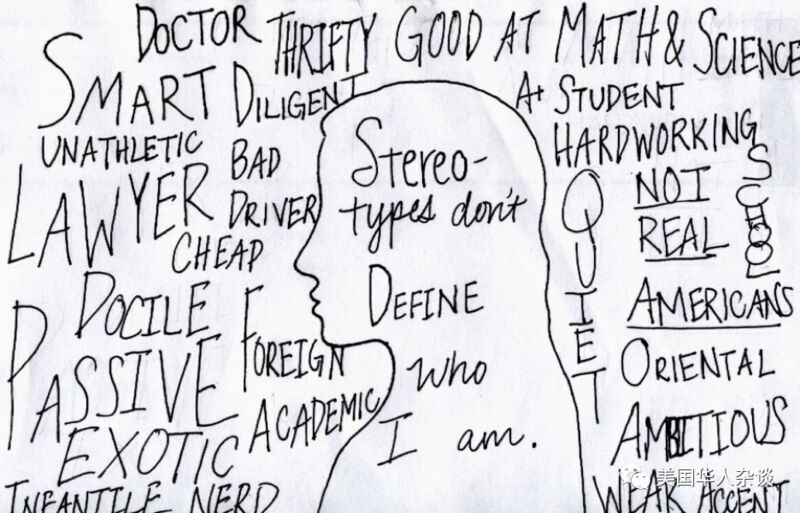 DOCTOR
THRIFTY
GOOD AT MATH & SCIENCE
SMART
DILIGENT
A+ STUDENT
UNATHLETIC
BAD
DRIVER
HARDWORKING
LAWYER
CHEAP
Stereo-
types don't
DEFINE
who
I am.
QUIET
NOT
REAL
AMERICANS
DOCILE
FOREIGN
PASSIVE
ACADEMIC
EXOTIC
ORIENTAL
AMBITIOUS
INFANTILE NERD
WEAR ACCENT
美国华人杂谈